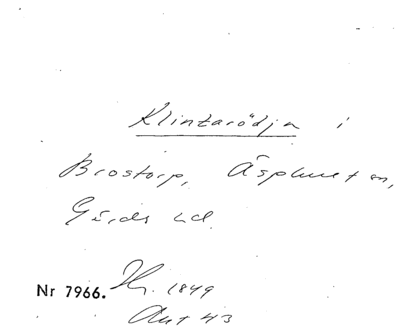 Klintarödja i
Brostorp, Äsphult sn,
Gärds hd.
Nr 7966. Hr. 1849
Akt 43